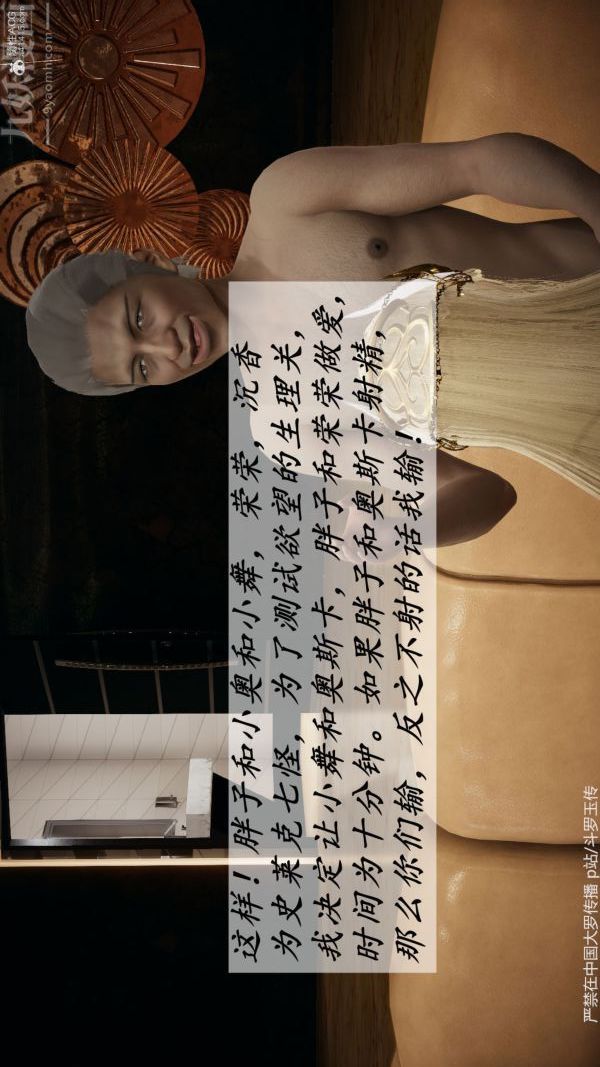 这样！胖子和小奥和小舞，荣荣，沉香
为史莱克七怪，为了测试欲望的生理关，
我决定让小舞和奥斯卡，胖子和荣荣做爱，
时间为十分钟。如果胖子和奥斯卡射精，
那么你们输，反之不射的话我输！
严禁在中国大罗传播 p站/斗罗玉传
九妖漫画
9yaomh.com